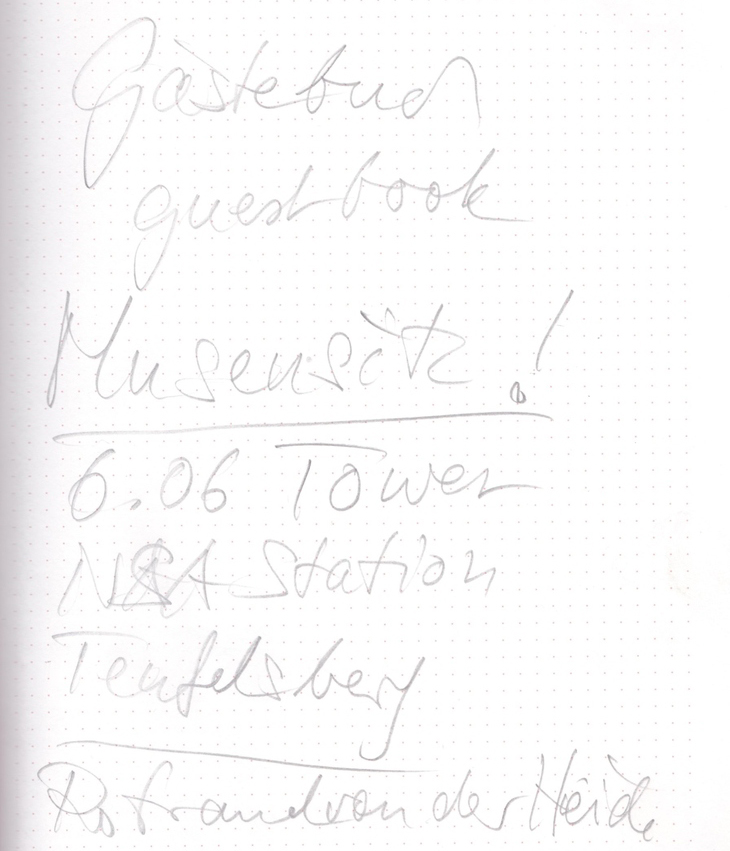 Gästebuch
guestbook
Musensitz!
6.06 Tower
NSA Station
Teufelsberg
von der Heide